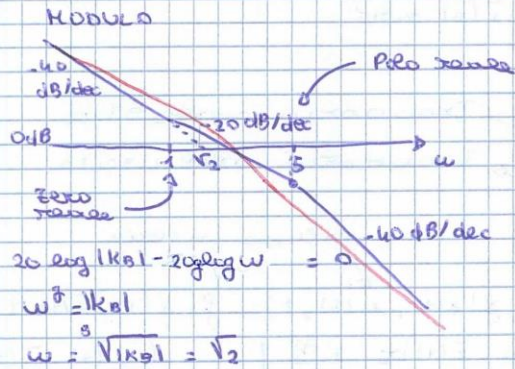 MODULO
-40
dB/dec
Polo reale
-20 dB/dec
0dB
1 √2 5 ω
Zero
reale
-40 dB/dec
20 log |KB| - 20g log ω = 0
ω^g = |KB|
ω = ᵍ√|KB| = √2